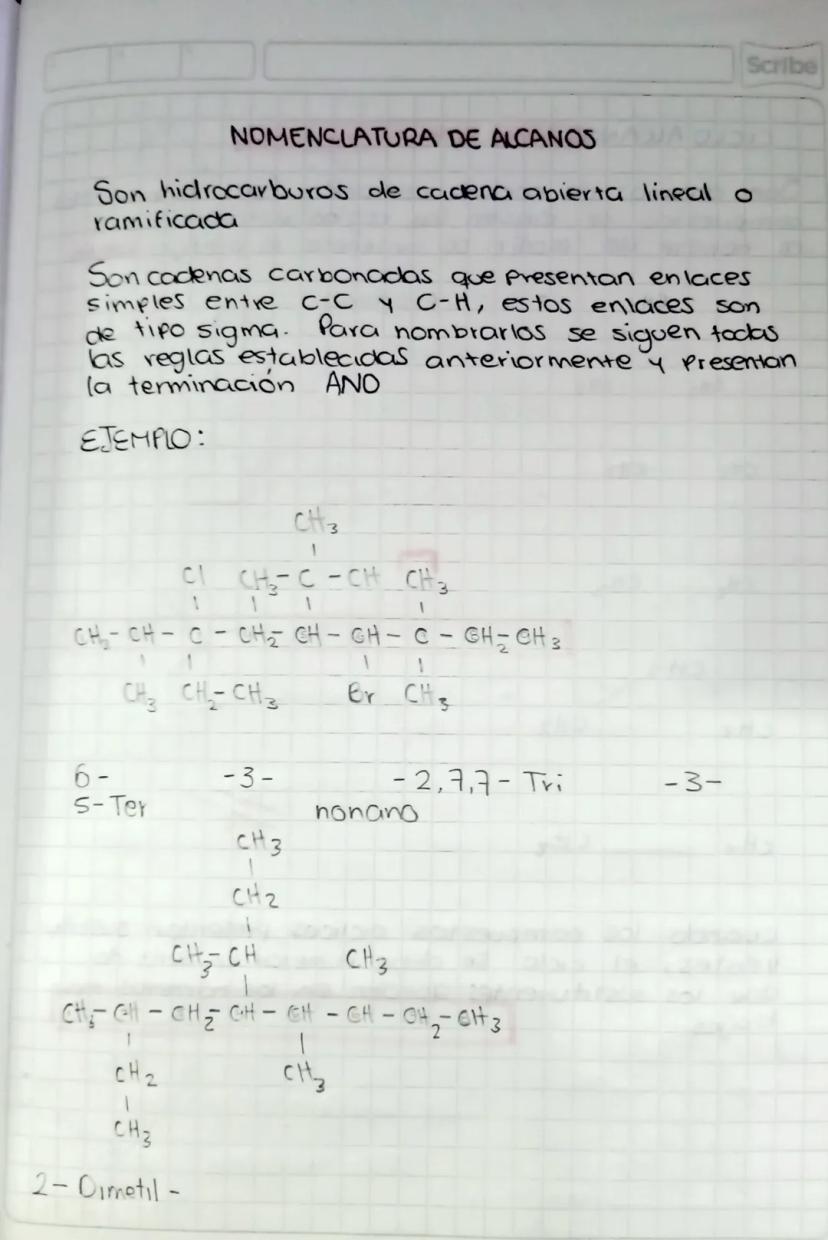 Scribe
NOMENCLATURA DE ALCANOS
Son hidrocarburos de cadena abierta lineal o
ramificada
Son cadenas carbonadas que presentan enlaces
simples entre C-C y C-H, estos enlaces son
de tipo sigma. Para nombrarlos se siguen todas
las reglas establecidas anteriormente y presentan
la terminación ANO
EJEMPLO:
CH3
Cl CH3-C-CH CH3
CH3-CH-C-CH2-CH-CH-C-CH2-CH3
CH3 CH2-CH3 Br CH3
6- -3- -2,7,7-Tri -3-
5-Ter nonano
CH3
CH2
CH3-CH CH3
CH3-CH-CH2-CH-CH-CH-CH2-CH3
CH2 CH3
CH3
2-Dimetil-